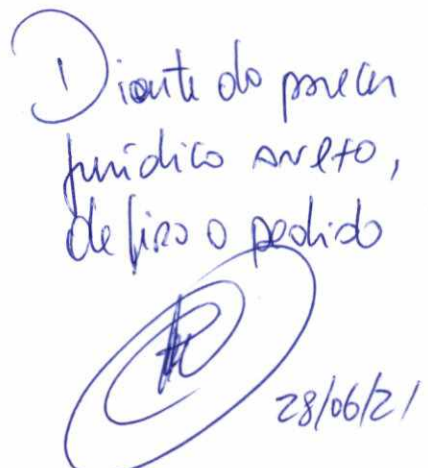 Diante do parecer
jurídico anexo,
defiro o pedido
28/06/21